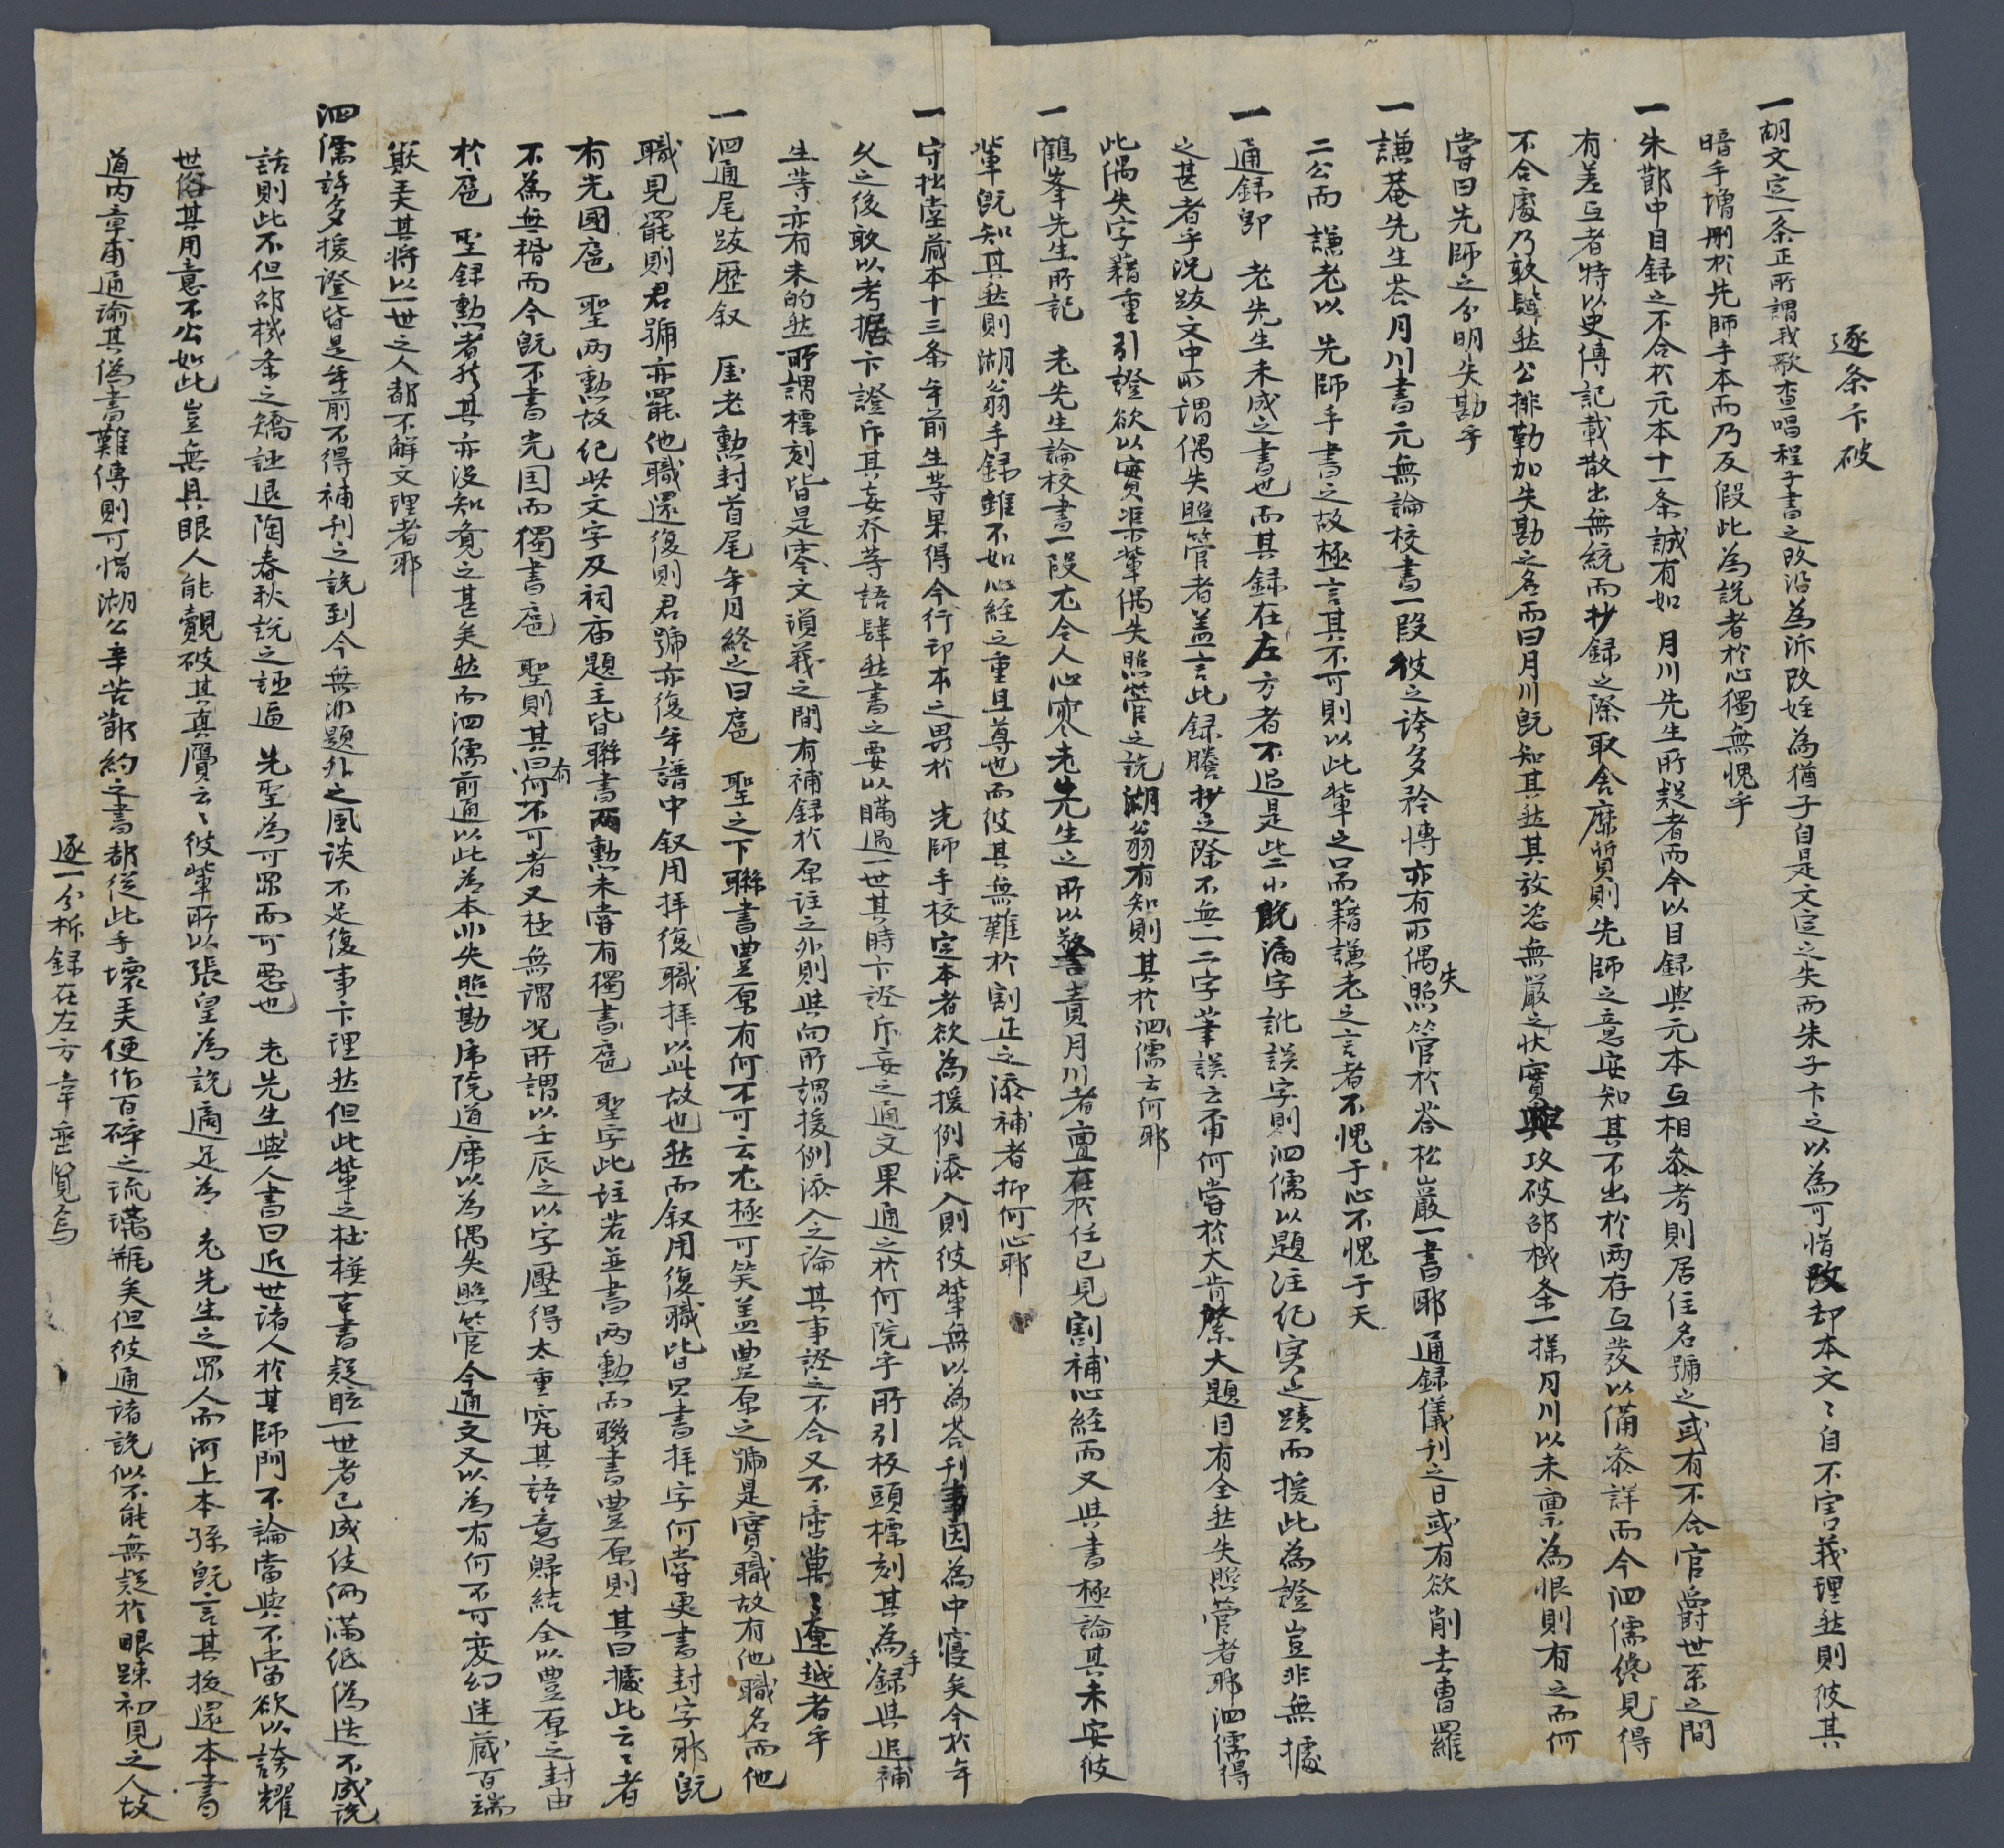 逐条卞破
一胡文定一条正所謂我歌查唱程子書之改沿為泝改姪為猶子自是文定之失而朱子卞之以為可惜改却本文〻自不害義理然則彼其
暗手増刪於先師手本而乃反假此為說者於心獨無愧乎
一朱鄭中目録之不合於元本十一条誠有如 月川先生所疑者而今以目録與元本互相叅考則居住名號之或有不合官爵世系之間
有差互者特以史傳記載散出無統而抄録之際取舍靡質則先師之意安知其不出於两存互發以備叅詳而今泗儒纔見得
不合處乃敢肆然公排勒加失勘之名而曰月川既知其然其放恣無嚴之状實與攻破邵棫条一揆月川以未禀為恨則有之而何
嘗曰先師之分明失勘乎
一謙菴先生答月川書元無論校書一段彼之誇多矜愽亦有所偶失照管於答松巖一書耶通録儀刊之日或有欲削去曺羅
二公而 謙老以 先師手書之故極言其不可則以此輩之口而藉謙老之言者不愧于心不愧于天
一通録卽 老先生未成之書也而其録在左方者不過是些小脱漏字訛誤字則泗儒以題注纪実之蹟而援此為證豈非無據
之甚者乎况跋文中所謂偶失照管者盖言此録謄抄之際不無一二字筆誤云甭何嘗於大肯綮大題目有全然失照管者耶泗儒得
此偶失字藉重引證欲以實渠輩偶失照管之說湖翁有知則其於泗儒云何耶
一鶴峯先生所記 老先生論校書一段尤令人心寒老先生之所以警責月川者亶在於任已見割補心経而又與書極論其未安彼
輩既知其然則湖翁手録雖不如心經之重且尊也而彼其無難於割正之添補者抑何心耶
一守拙堂蔵本十三条年前生等果得今行印本之異於 先師手校定本者欲為援例添入則彼輩無以為答刊事因為中寝矣今於年
久之後敢以考据卞證斥其妄夼等語肆然書之要以瞞過一世其時卞證斥妄之通文果通之於何院乎所引板頭標刻其為手録與追補
生等亦有未的然所謂標刻皆是零文瑣義之間有補録於原註之外則與向所謂援例添入之論其事證之不合又不啻萬〻遼越者乎
一泗通尾跋歷叙 厓老勳封首尾年月終之曰扈 聖之下聯書豊原有何不可云尤極可笑盖豊原之號是實職故有他職名而他
職見罷則君號亦罷他職還復則君號亦復年譜中叙用拝復職拝以此故也然而叙用復職皆只書拝字何嘗更書封字耶既
有光國扈 聖两勳故纪此文字及祠庙題主皆聯書两勳未嘗有獨書扈 聖字此註若並書两勳而聯書豊原則其曰據此云〻者
不為無稽而今既不書光国而獨書扈 聖則其曰有何不可者又極無謂况所謂以壬辰之以字壓得太重究其語意歸結全以豊原之封由
於扈 聖録勳者於其亦没知覔之甚矣然而泗儒前通以此為本小失照勘席院道席以為偶失照管今通文又以為有何不可変幻迷蔵百端
厭美其将以一世之人都不解文理者耶
泗儒許多援證皆是年前不得補刊之說到今無非題外之風谈不足復事卞理然但此輩之杜撰古書疑眩一世者已成伎倆滿紙偽造不成說
話則此不但邵棫条之矯誣退陶春秋說之誣逼 先聖為可罪而可惡也 老先生與人書曰近世諸人於其師門不論當與不當欲以誇耀
世俗其用意不公如此豈無具眼人能覷破其真贋云〻彼輩所以張皇為說適足為 老先生之罪人而河上本孫既言其投還本書
道内章甫通諭其偽書難傳則可惜湖公辛苦䣊約之書都従此手壞美便作百碎之琉璃瓶矣但彼通諸說似不能無疑於眼疎初見之人故
逐一分柝録在左方幸垂覧焉